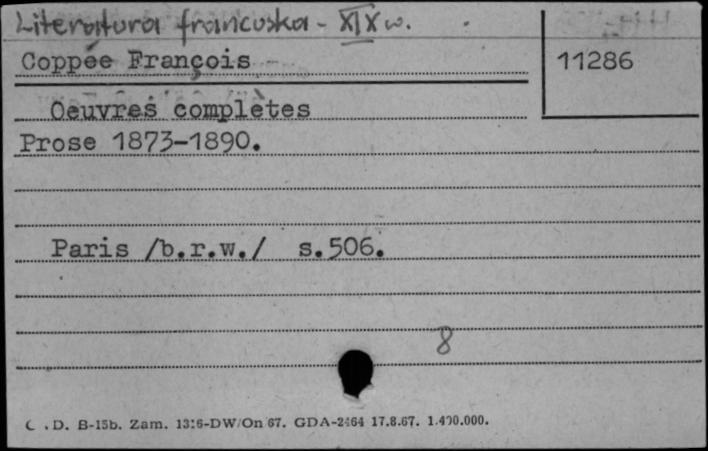 Literatura francuska - XIX w.
Coppée François
11286
Oeuvres complètes
Prose 1873-1890.
Paris /b.r.w./ s.506.
8
.D. B-15b. Zam. 1316-DW/On/67. GDA-2464 17.8.67. 1.400.000.